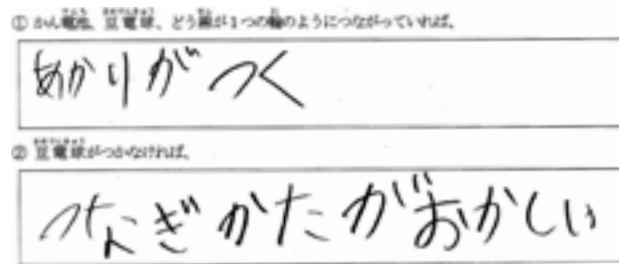 ① かん電池、豆電球、どう線が1つの輪のようにつながっていれば、
あかりがつく
② 豆電球がつかなければ、
つなぎかたがおかしい